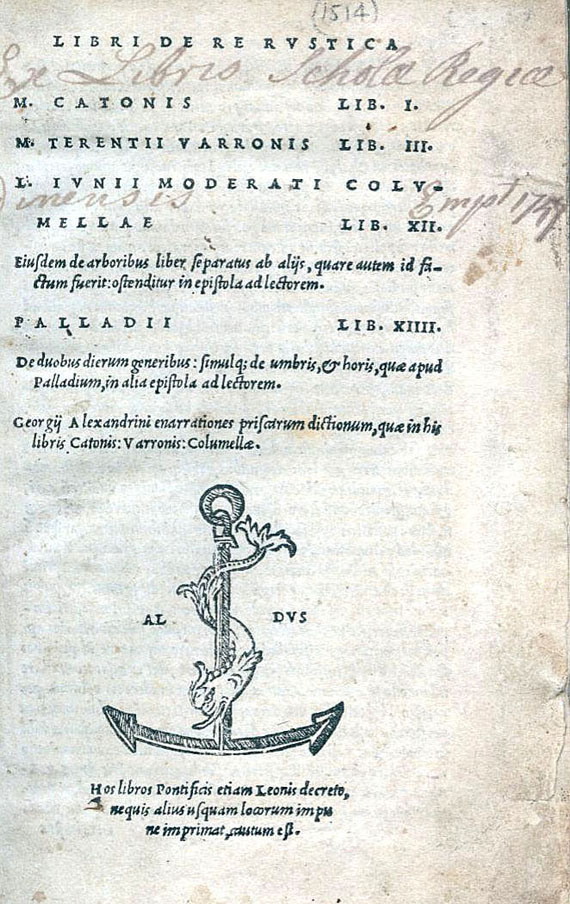 (1514)
LIBRI DE RE RVSTICA
Ex Libris Scholæ Regiæ
M. CATONIS LIB. I.
M. TERENTII VARRONIS LIB. III.
L. IVNII MODERATI COLV-
dinensis Empt 1747
MELLAE LIB. XII.
Eiusdem de arboribus liber separatus ab alijs, quare autem id fa-
ctum fuerit: ostenditur in epistola ad lectorem.
PALLADII LIB. XIIII.
De duobus dierum generibus: simulq; de umbris, & horis, quæ apud
Palladium, in alia epistola ad lectorem.
Georgij Alexandrini enarrationes priscarum dictionum, quæ in his
libris Catonis: Varronis: Columellæ.
AL DVS
Hos libros Pontificis etiam Leonis decreto,
nequis alius usquam locorum impu
ne imprimat, cautum est.